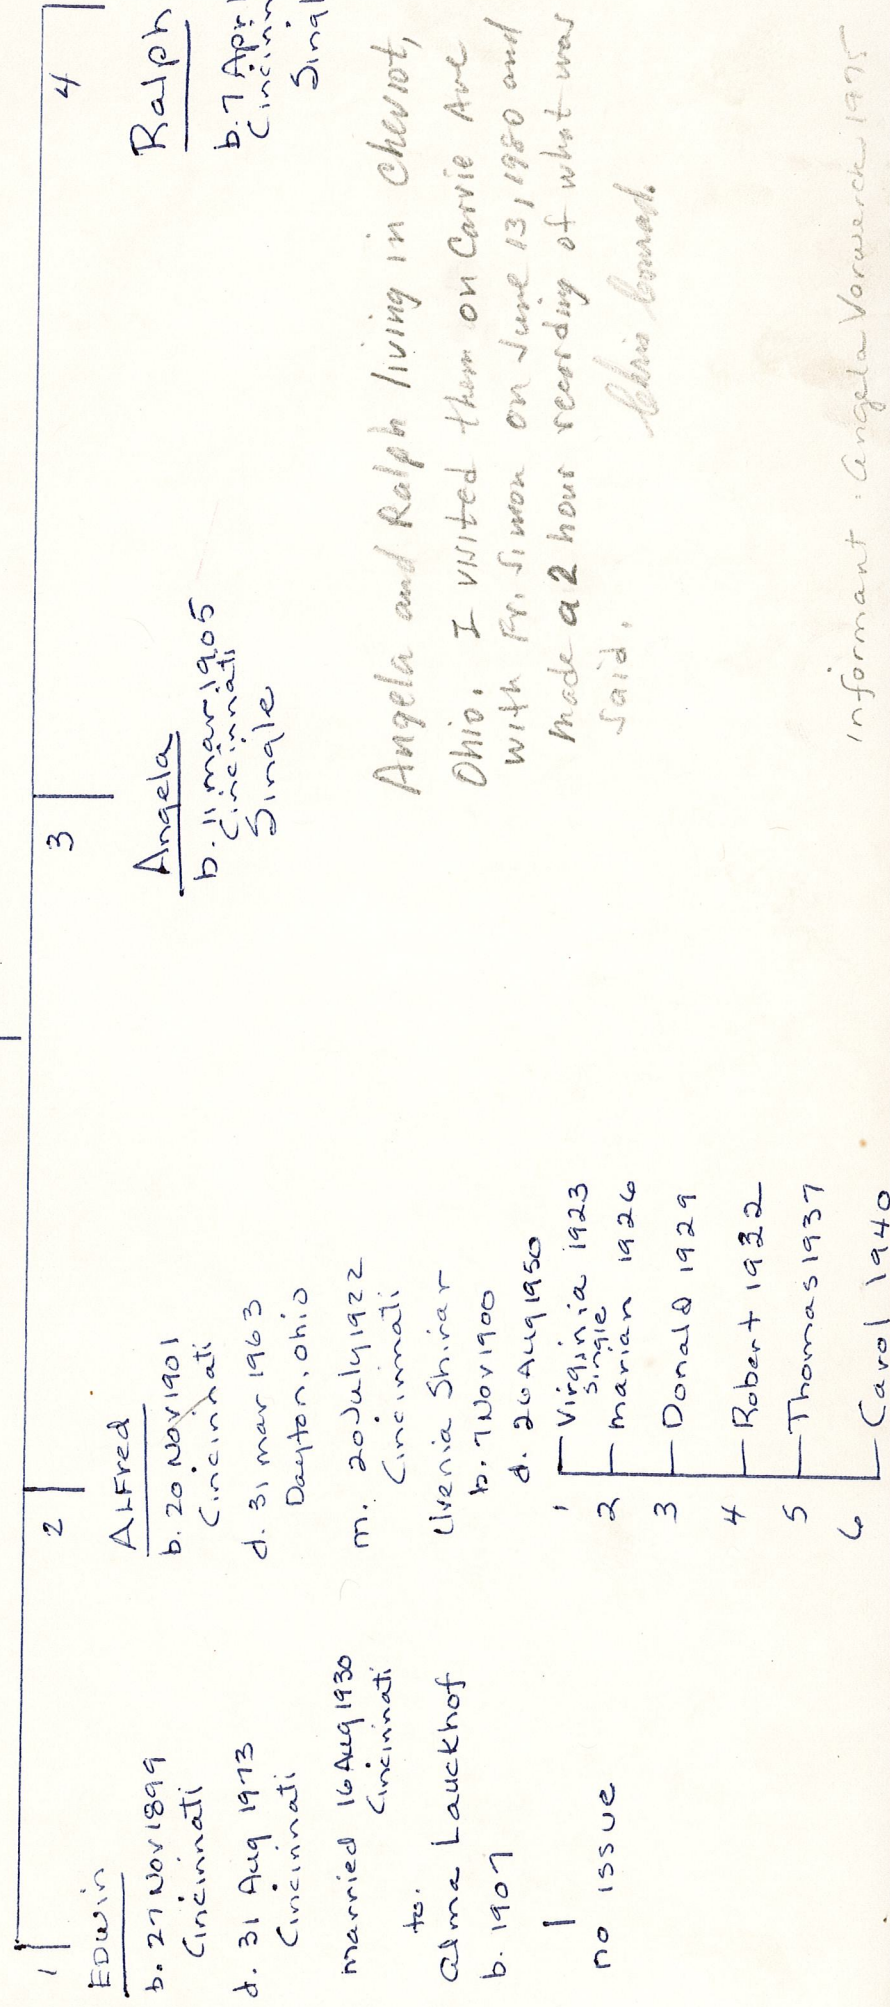 1
EDwin
b. 27 Nov 1899
Cincinnati
d. 31 Aug 1973
Cincinnati
married 16 Aug 1930
Cincinnati
to.
Alma Lauckhof
b. 1907
no issue
2
ALFred
b. 20 Nov 1901
Cincinnati
d. 31 mar 1963
Dayton, Ohio
m. 20 July 1922
Cincinnati
Livenia Shirar
b. 7 Nov 1900
d. 26 Aug 1950
1 Virginia 1923
single
2 marian 1926
3 Donald 1929
4 Robert 1932
5 Thomas 1937
6 Carol 1940
3
Angela
b. 11 mar 1905
Cincinnati
Single
4
Ralph
b. 7 Apr
Cincinn
Singl
Angela and Ralph living in Cheviot,
Ohio. I visited them on Carvie Ave
with Fr. Simon on June 13, 1980 and
made a 2 hour recording of what was
said.
Chris Conrad.
Informant: Angela Vorwerck 1975